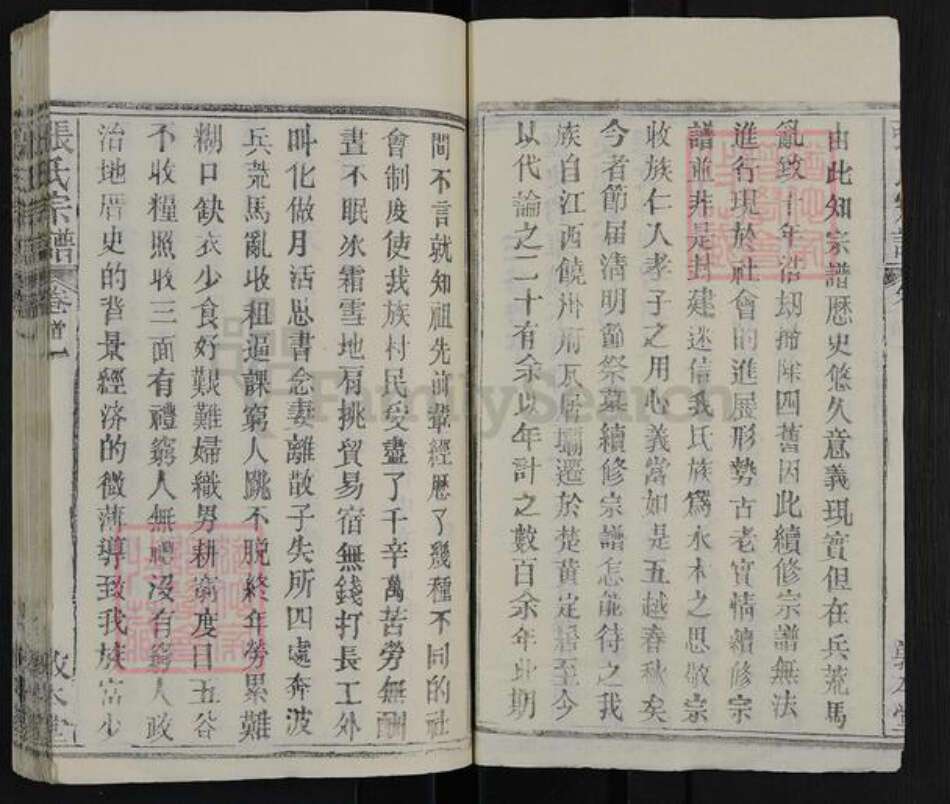 由此知宗譜歷史悠久意義現實但在兵荒馬
亂致十年浩劫掃除四舊因此續修宗譜無法
進行現於社會的進展形勢古老實情續修宗
譜並非是封建迷信我氏族爲水木之思敬宗
收族仁人孝子之用心義當如是五越春秋矣
今者節届清明節祭墓續修宗譜怎能待之我
族自江西饒州府瓦屑壩遷於楚黄定居至今
以代論之二十有余以年計之數百余年此期
間不言就知祖先前輩經歷了幾種不同的社
會制度使我族村民受盡了千辛萬苦勞無酬
晝不眠冰霜雪地肩挑貿易宿無錢打長工外
叫化做月活思書念妻離散子失所四處奔波
兵荒馬亂收租逼課窮人跳不脫終年勞累難
糊口缺衣少食好艱難婦織男耕窮度日五谷
不收糧照收三面有禮窮人無禮沒有窮人政
治地厝史的背景經济的微薄導致我族當少
張氏宗譜
卷首一
敦本堂
FamilySearch